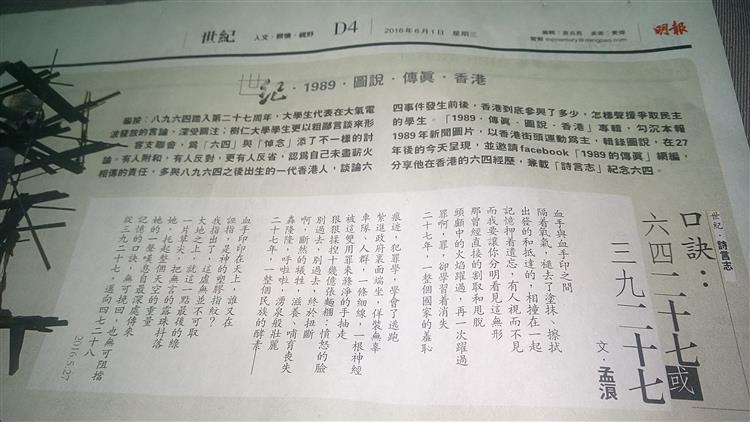 世紀 人文・關懷・視野 D4 2016年6月1日 星期三
明報
世紀・1989・圖說・傳真・香港
編按：八九六四踏入第二十七周年，大學生代表在大氣電
波發放的言論，深受關注；樹仁大學學生更以粗鄙言談來形
容支聯會，為「六四」與「悼念」添了不一樣的討
論，有人附和，有人反對，更有人反省，認為自己未盡薪火
相傳的責任，多與八九六四之後出生的一代香港人，談論六
四事件發生前後，香港到底參與了多少，怎樣聲援爭取民主
的學生。「1989・傳真・圖說・香港」專輯，勾沉本報
1989年新聞圖片，以香港街頭運動為主，輯錄圖說，在27
年後的今天呈現，並邀請facebook「1989的傳真」網編，
分享他在香港的六四經歷，兼載「詩言志」紀念六四。
世紀・詩言志
口訣：
六四二十七或
三九二十七
文・孟浪
血手與血手印之間
隔着氧氣，褪去了塗抹、擦拭
出發的和抵達的，相撞在一起
記憶押着遺忘，有人視而不見
而我要讓你分明看見這無形
那曾經直接的割取和甩脫
頭顱中的火焰躍過，再一次躍過
罪啊，罪，卻學習着消失
二十七年，一整個國家的羞恥
痕迹，犯罪學，學會了逃跑
紮進政府裏面端坐，佯裝無辜
車隊，人群，一條細線，一根神經
被這雙用罪來滌淨的手抽走
狠狠揉捏十幾億張麵糰：憤怒的臉
別過去，別過去，終於扭斷
啊，斷然的犧牲，滋養、哺育喪失
轟隆隆，呼啦啦，湧泉般壯麗
二十七年，一整個民族的酵素——
血手印印在天上，誰又在
誑指，是神的塑膠指紋？
我指出了，這虛無並不可取
大地之上，就這一點最後的綠
一片草尖，把無言的露珠抖落
她，托起整個天空的重量
她的一聲嘆息自最深處傳來
記憶的口訣，無可挽回，也無可阻擋
從三九二十七，邁向四七二十八
2016.5.27